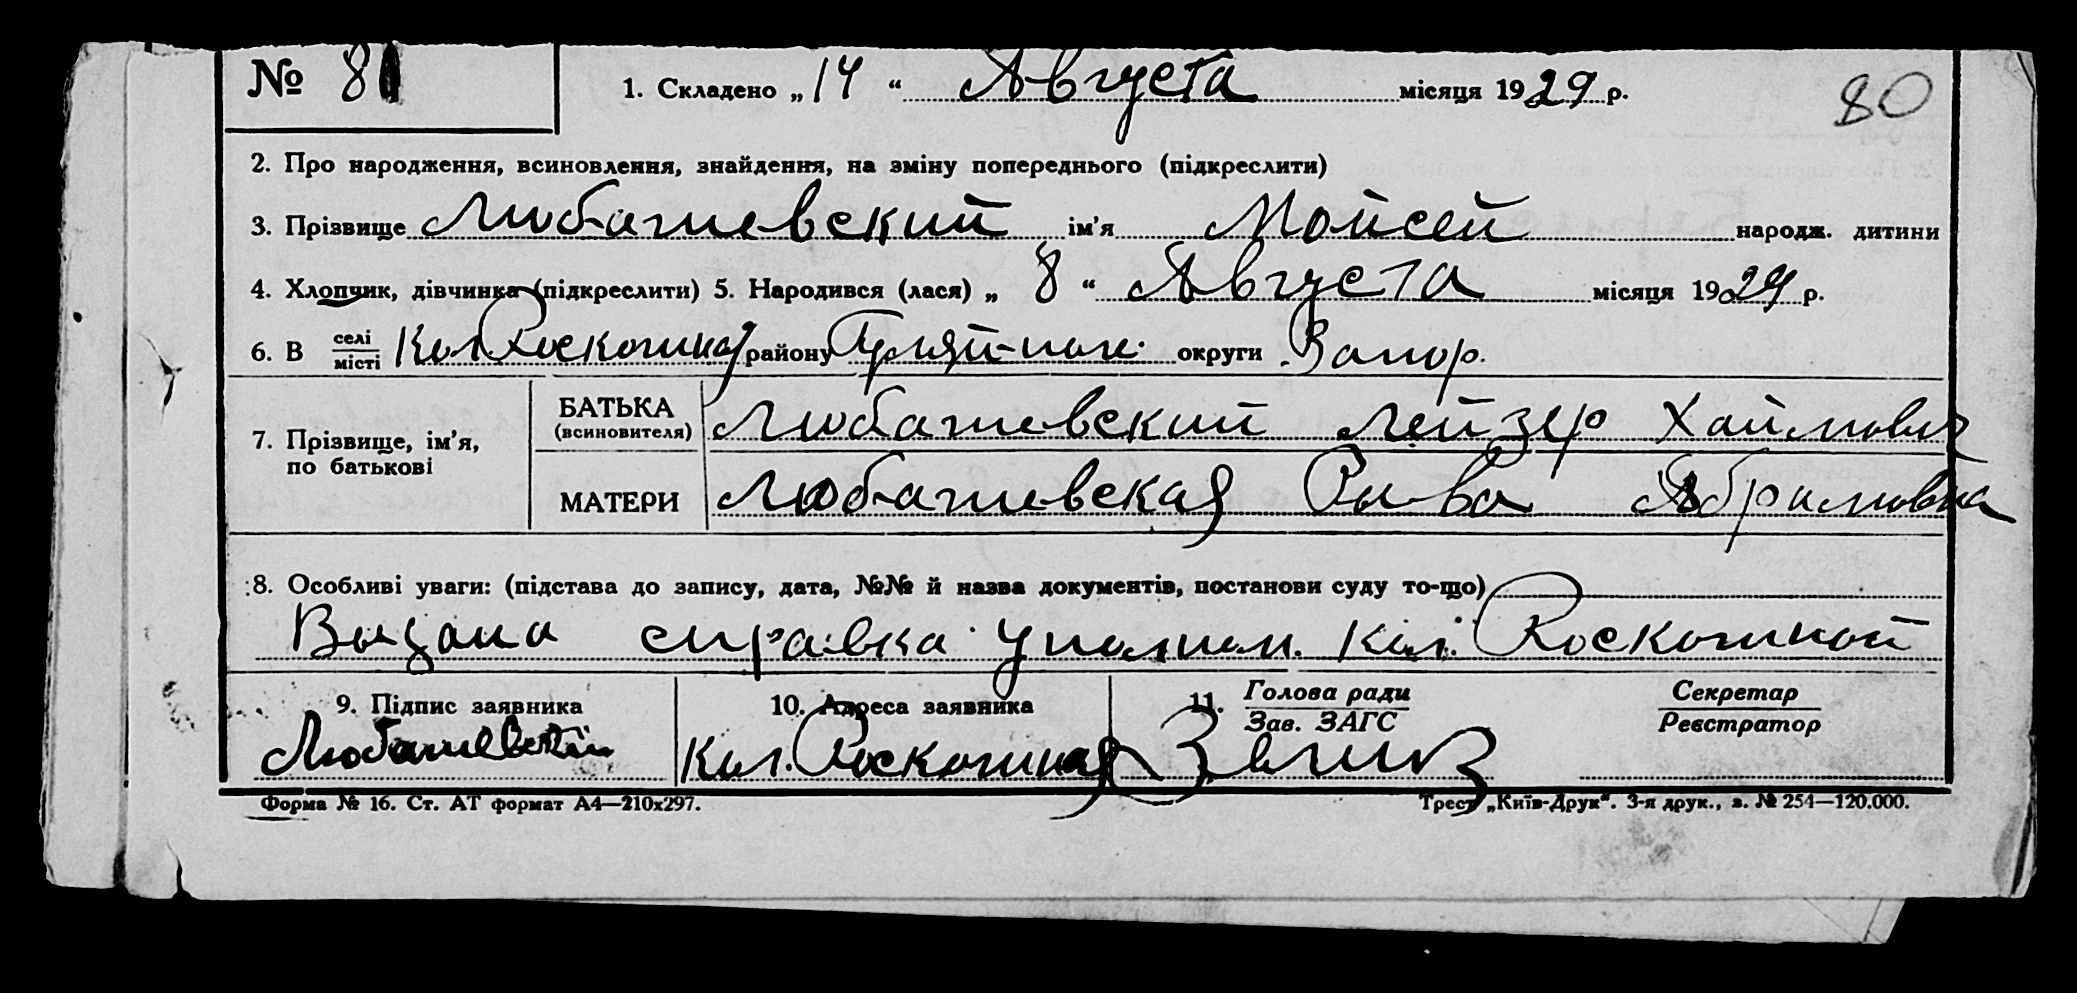 № 81
1. Складено „14“ Августа місяця 1929 р.
80
2. Про народження, всиновлення, знайдення, на зміну попереднього (підкреслити)
3. Прізвище Любашевский ім’я Мойсей народж. дитини
4. Хлопчик, дівчинка (підкреслити) 5. Народився (лася) „8“ Августа місяця 1929 р.
6. В селі/місті Кол. Роскошная району Гуляй-поле округи Запор.
7. Прізвище, ім’я, по батькові
БАТЬКА (всиновителя) Любашевский Лейзер Хаймович
МАТЕРИ Любашевская Рива Абрамовна
8. Особливі уваги: (підстава до запису, дата, №№ й назва документів, постанови суду то-що)
Видана справка уполном. Кол. Роскошной
9. Підпис заявника 10. Адреса заявника 11. Голова ради/Зав. ЗАГС Секретар/Реєстратор
Любашевский Кол. Роскошная
Форма № 16. Ст. АТ формат А4—210х297. Трест „Київ-Друк“. 3-я друк., з. № 254—120.000.